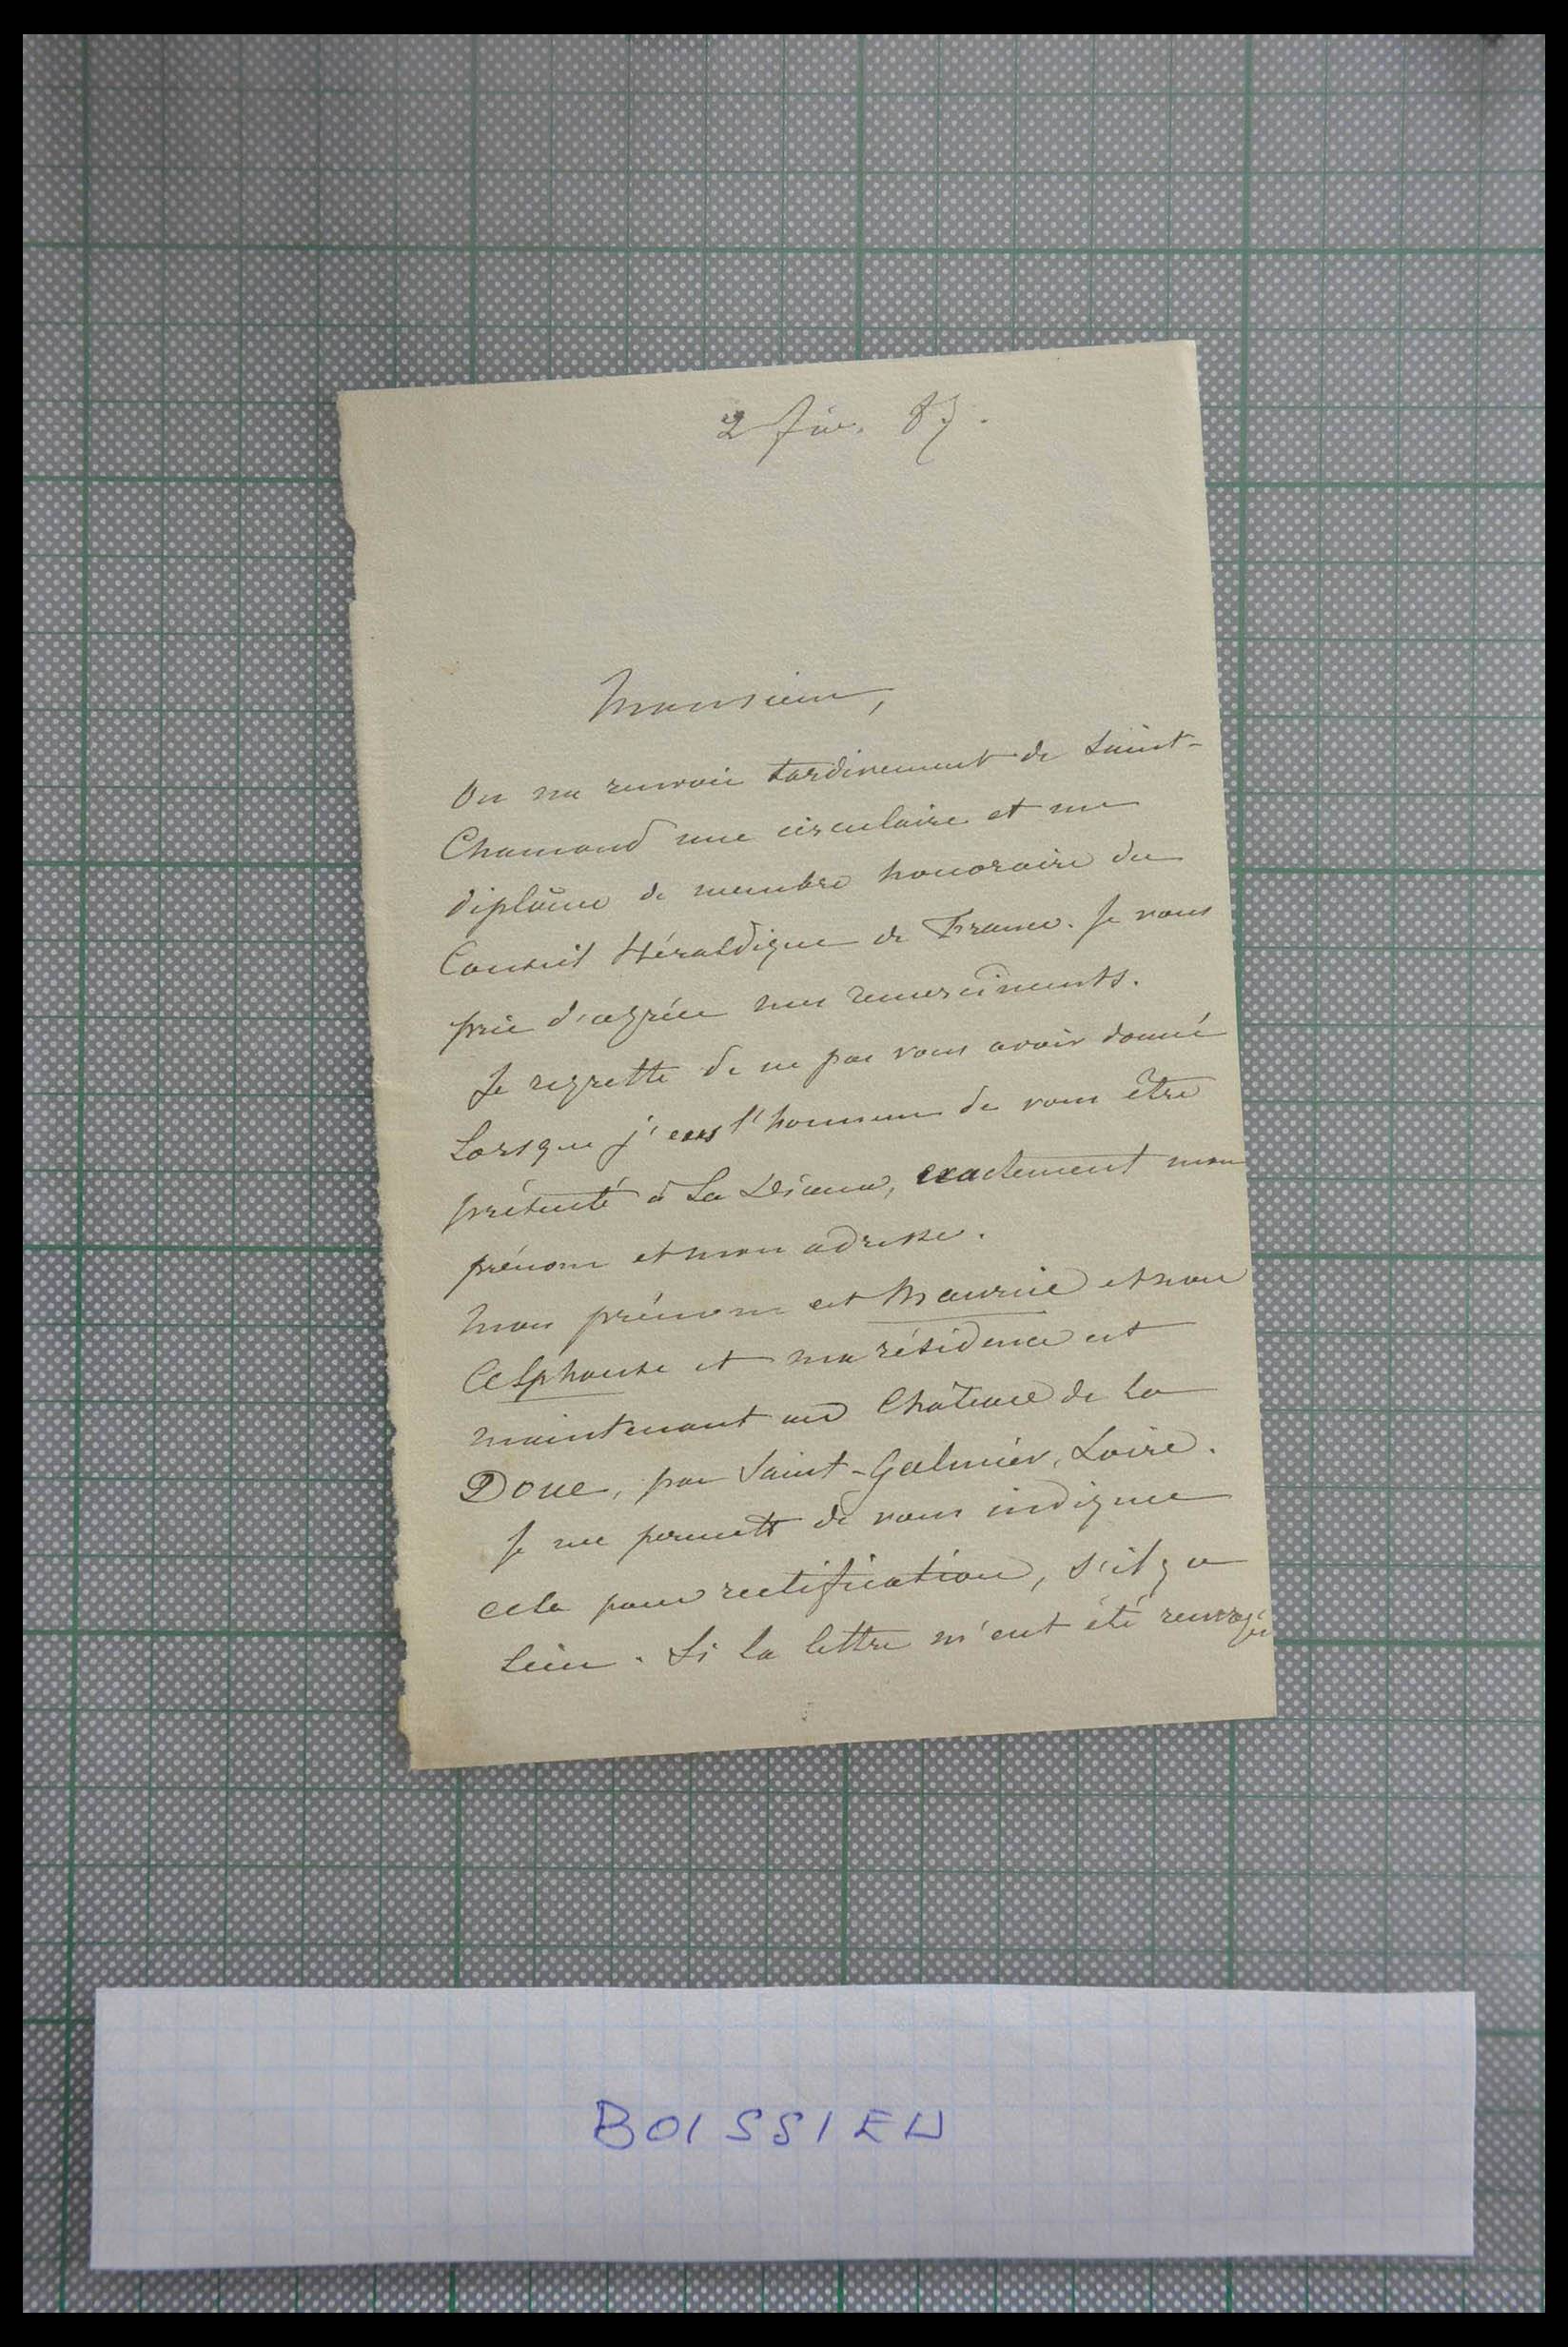 2 fév. 87.
Monsieur,
On me renvoie tardivement de Saint-
Chamond une circulaire et un
diplôme de membre honoraire du
Conseil Héraldique de France. Je vous
prie d'agréer mes remerciments.
Je regrette de ne pas vous avoir donné
lorsque j'eus l'honneur de vous être
présenté à La Diana, exactement mon
prénom et mon adresse.
Mon prénom est Maurice et non
Alphonse et ma résidence est
maintenant au Château de la
Doue, par Saint-Galmier, Loire.
Je me permets de vous indiquer
cela pour rectification, s'il y a
lieu. Si la lettre m'eut été renvoyée
BOISSIEU